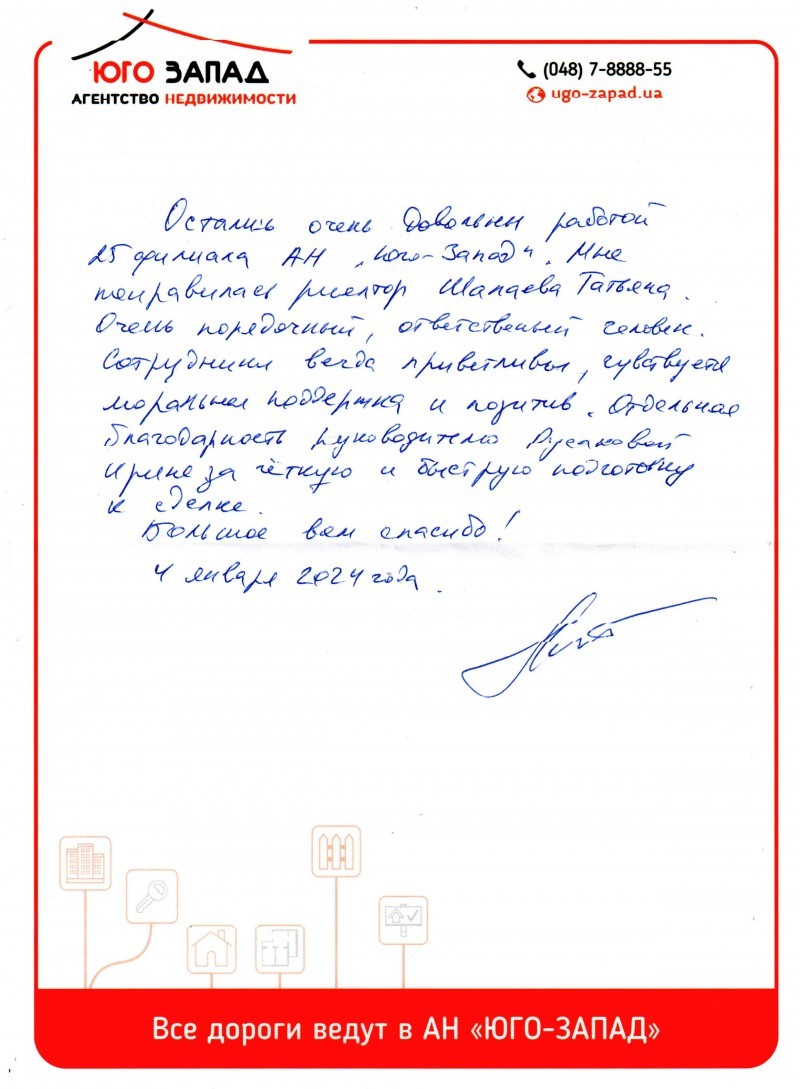 ЮГО ЗАПАД
АГЕНТСТВО НЕДВИЖИМОСТИ
(048) 7-8888-55
ugo-zapad.ua
Остались очень довольны работой
25 филиала АН „Юго-Запад". Мне
понравилась риелтор Шапаева Татьяна.
Очень порядочный, ответственный человек.
Сотрудники всегда приветливы, чувствуется
моральная поддержка и позитив. Отдельная
благодарность руководителю Русаковой
Ирине за чёткую и быструю подготовку
к сделке.
Большое вам спасибо!
4 января 2024 года.
Все дороги ведут в АН «ЮГО-ЗАПАД»